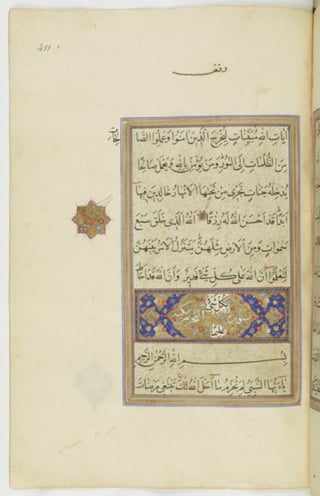 411
وقف
آيَاتِ اللهِ مُبَيِّنَاتٍ لِيُخْرِجَ الَّذِينَ آمَنُوا وَعَمِلُوا الصَّا
لِحَاتِ
مِنَ الظُّلُمَاتِ إِلَى النُّورِ وَمَنْ يُؤْمِنْ بِاللهِ وَيَعْمَلْ صَالِحًا
يُدْخِلْهُ جَنَّاتٍ تَجْرِي مِنْ تَحْتِهَا الْأَنْهَارُ خَالِدِينَ فِيهَا
أَبَدًا قَدْ أَحْسَنَ اللهُ لَهُ رِزْقًا اللهُ الَّذِي خَلَقَ سَبْعَ
سَمٰوَاتٍ وَمِنَ الْأَرْضِ مِثْلَهُنَّ يَتَنَزَّلُ الْأَمْرُ بَيْنَهُنَّ
لِتَعْلَمُوا أَنَّ اللهَ عَلَى كُلِّ شَيْءٍ قَدِيرٌ وَأَنَّ اللهَ قَدْ أَحَاطَ
بِكُلِّ شَيْءٍ
سورة التحريم
عِلْمًا
بِسْمِ اللهِ الرَّحْمٰنِ الرَّحِيمِ
يَا أَيُّهَا النَّبِيُّ لِمَ تُحَرِّمُ مَا أَحَلَّ اللهُ لَكَ تَبْتَغِي مَرْضَاتَ